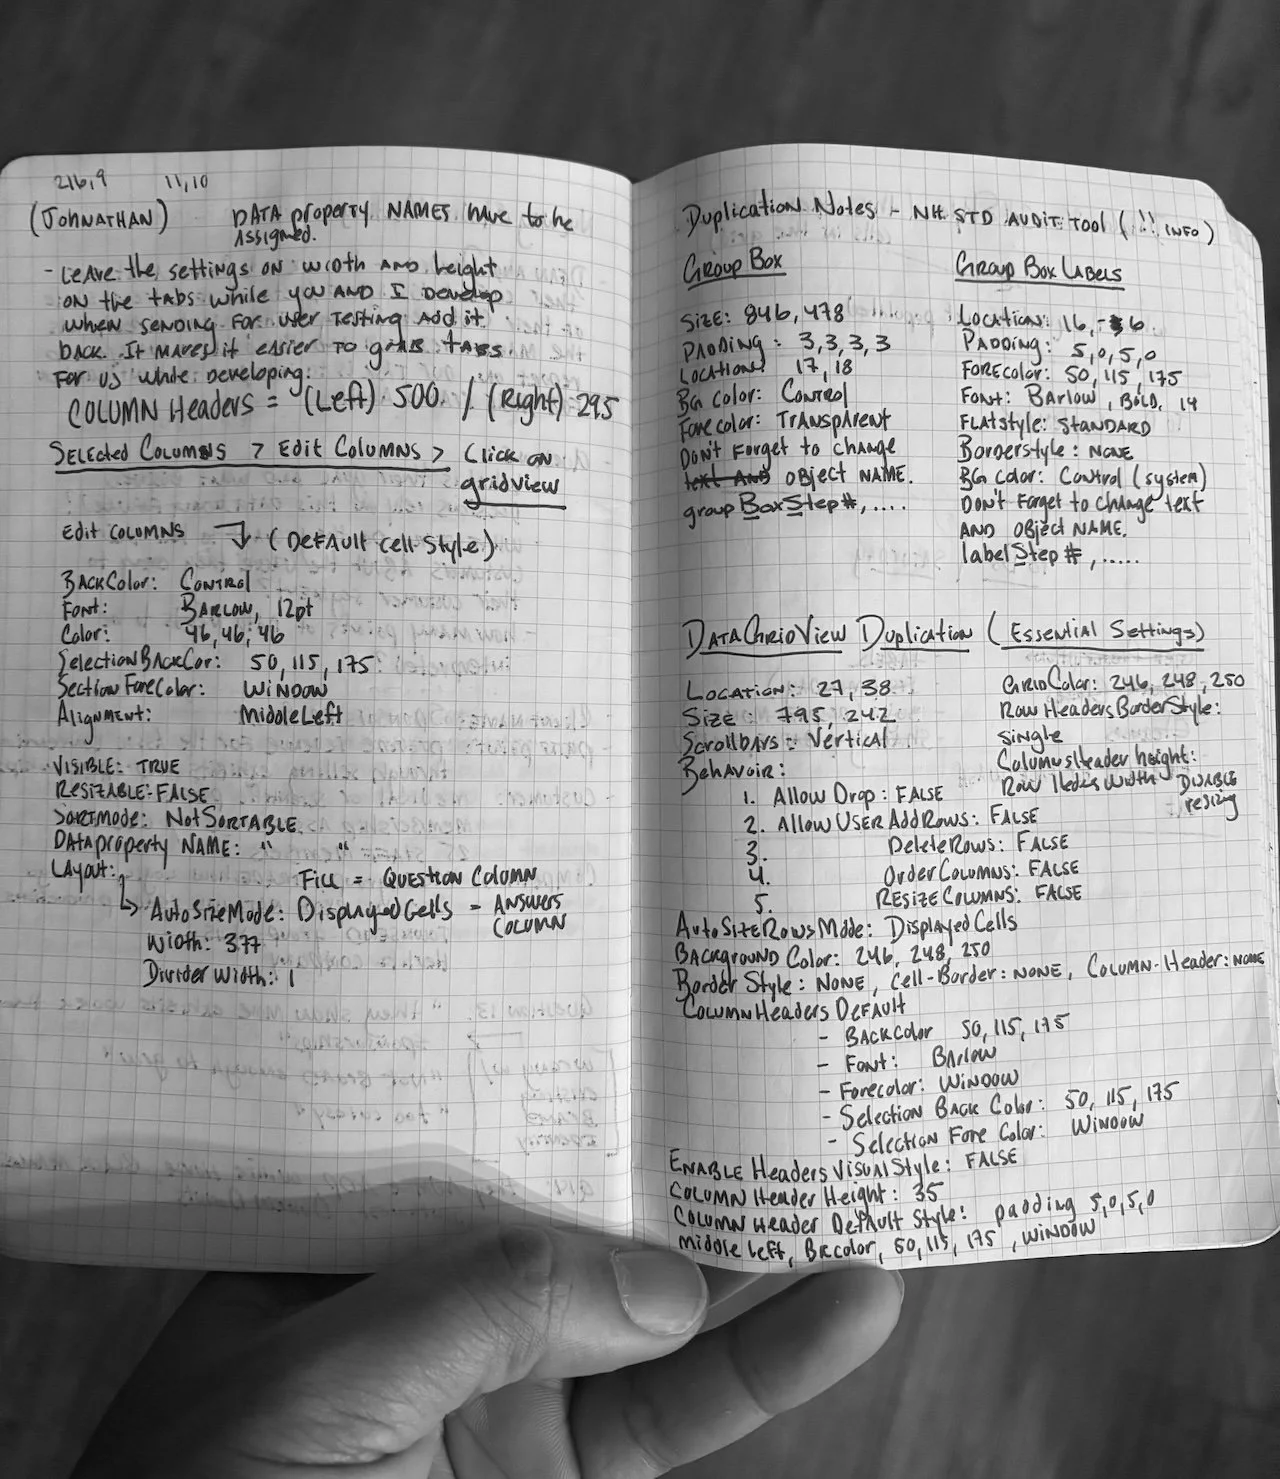 216,9 11,10
(JOHNATHAN) DATA property NAMES have to be
Assigned.
- Leave the settings on width AND height
on the tabs while you AND I Develop
when sending for user testing Add it
back. It makes it easier to grab tabs.
For us while developing.
COLUMN Headers = (Left) 500 / (Right) 295
Selected Columns > Edit Columns > Click on
gridview
Edit Columns (Default cell style)
BackColor: Control
Font: Barlow, 12pt
Color: 46, 46, 46
SelectionBackCor: 50, 115, 175
Section ForeColor: Window
Alignment: MiddleLeft
VISIBLE: TRUE
Resizable: FALSE
Sortmode: NotSortable
Dataproperty NAME: " "
Layout: Fill = Question Column
AutoSizeMode: DisplayedCells = Answers
Column
Width: 377
Divider Width: 1
Duplication Notes - NH STD AUDIT TOOL (!! INFO)
Group Box
Size: 846, 478
Padding: 3,3,3,3
Location: 17, 18
BG color: Control
Fore color: Transparent
Don't Forget to change
text AND object NAME.
groupBoxStep#, ....
Group Box Labels
Location: 16, -6
Padding: 5,0,5,0
Forecolor: 50, 115, 175
Font: Barlow, Bold, 14
Flatstyle: Standard
Borderstyle: NONE
BG color: Control (system)
Don't Forget to change text
AND object NAME.
labelStep#, .....
DataGridView Duplication (Essential Settings)
Location: 27, 38
Size: 795, 242
Scrollbars: Vertical
Behavoir:
1. Allow Drop: FALSE
2. Allow User AddRows: FALSE
3. DeleteRows: FALSE
4. OrderColumns: FALSE
5. ResizeColumns: FALSE
GridColor: 246, 248, 250
Row HeadersBorderStyle:
Single
ColumnsHeader height:
Row Width Disable
resizing
AutoSizeRowsMode: Displayed Cells
Background Color: 246, 248, 250
Border Style: NONE, Cell-Border: NONE, Column-Header: NONE
Column Headers Default
- Backcolor 50, 115, 175
- Font: Barlow
- Forecolor: Window
- Selection Back Color: 50, 115, 175
- Selection Fore Color: Window
Enable Headers Visual Style: FALSE
Column Header Height: 35
Column Header Default Style: padding 5,0,5,0
Middle Left, Bkcolor, 50, 115, 175, Window